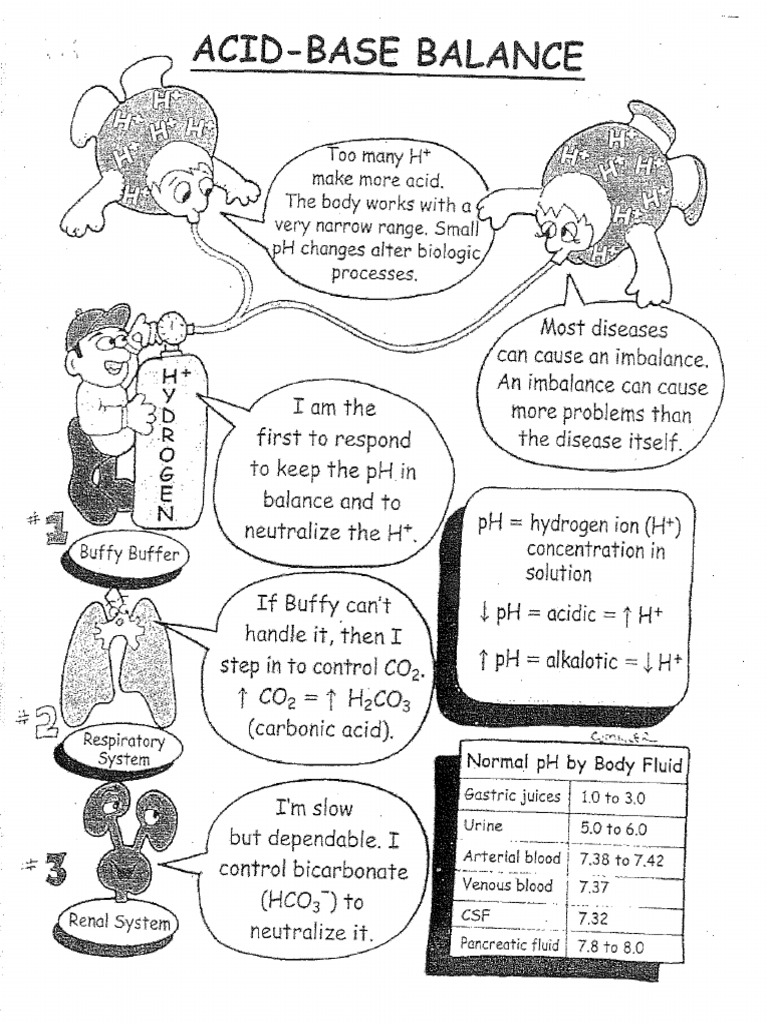 ACID-BASE BALANCE
H⁺ H⁺ H⁺ H⁺ H⁺ H⁺ H⁺
Too many H⁺
make more acid.
The body works with a
very narrow range. Small
pH changes alter biologic
processes.
H⁺ H⁺ H⁺ H⁺ H⁺ H⁺ H⁺
Most diseases
can cause an imbalance.
An imbalance can cause
more problems than
the disease itself.
H⁺
HYDROGEN
I am the
first to respond
to keep the pH in
balance and to
neutralize the H⁺.
#1
Buffy Buffer
pH = hydrogen ion (H⁺)
concentration in
solution
↓ pH = acidic = ↑ H⁺
↑ pH = alkalotic = ↓ H⁺
If Buffy can't
handle it, then I
step in to control CO₂.
↑ CO₂ = ↑ H₂CO₃
(carbonic acid).
#2
Respiratory
System
I'm slow
but dependable. I
control bicarbonate
(HCO₃⁻) to
neutralize it.
#3
Renal System
Normal pH by Body Fluid
Gastric juices 1.0 to 3.0
Urine 5.0 to 6.0
Arterial blood 7.38 to 7.42
Venous blood 7.37
CSF 7.32
Pancreatic fluid 7.8 to 8.0